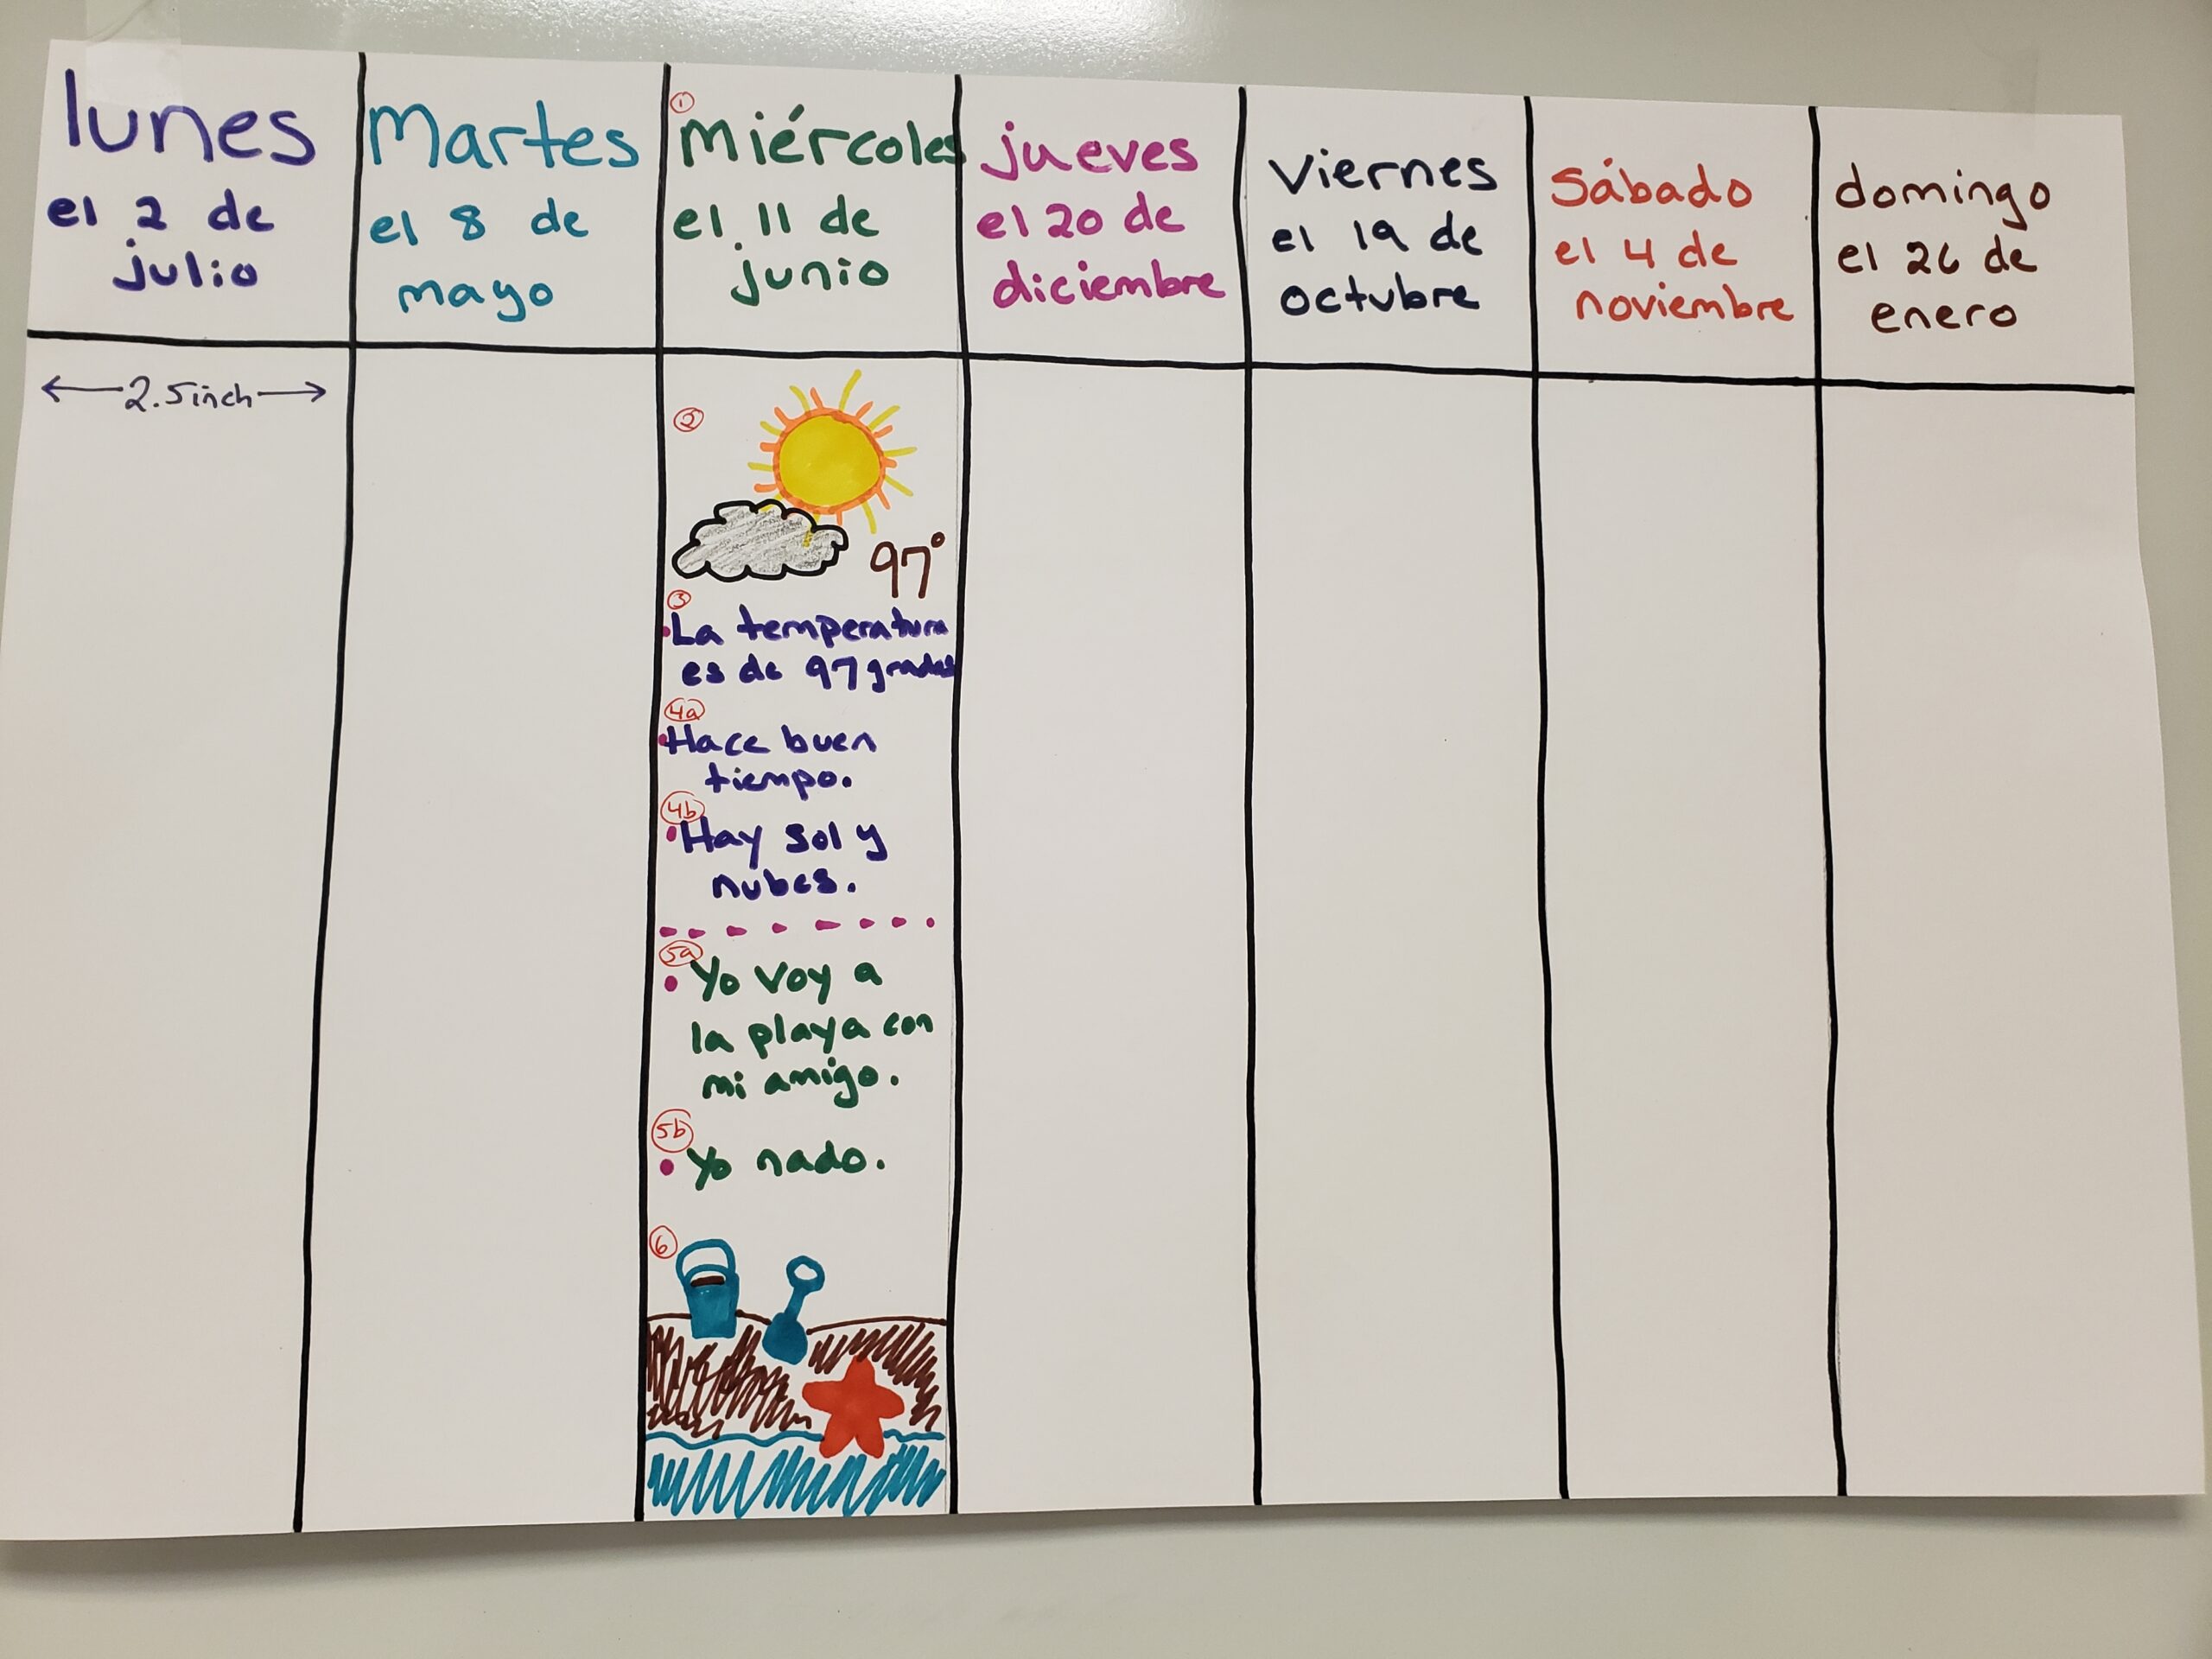 lunes
el 2 de
julio
Martes
el 8 de
mayo
①
Miércoles
el 11 de
junio
jueves
el 20 de
diciembre
Viernes
el 19 de
octubre
Sábado
el 4 de
noviembre
domingo
el 26 de
enero
2.5 inch
②
97°
③
•La temperatura
es de 97 grados
4a
•Hace buen
tiempo.
4b
•Hay sol y
nubes.
5a
•Yo voy a
la playa con
mi amigo.
5b
•Yo nado.
⑥